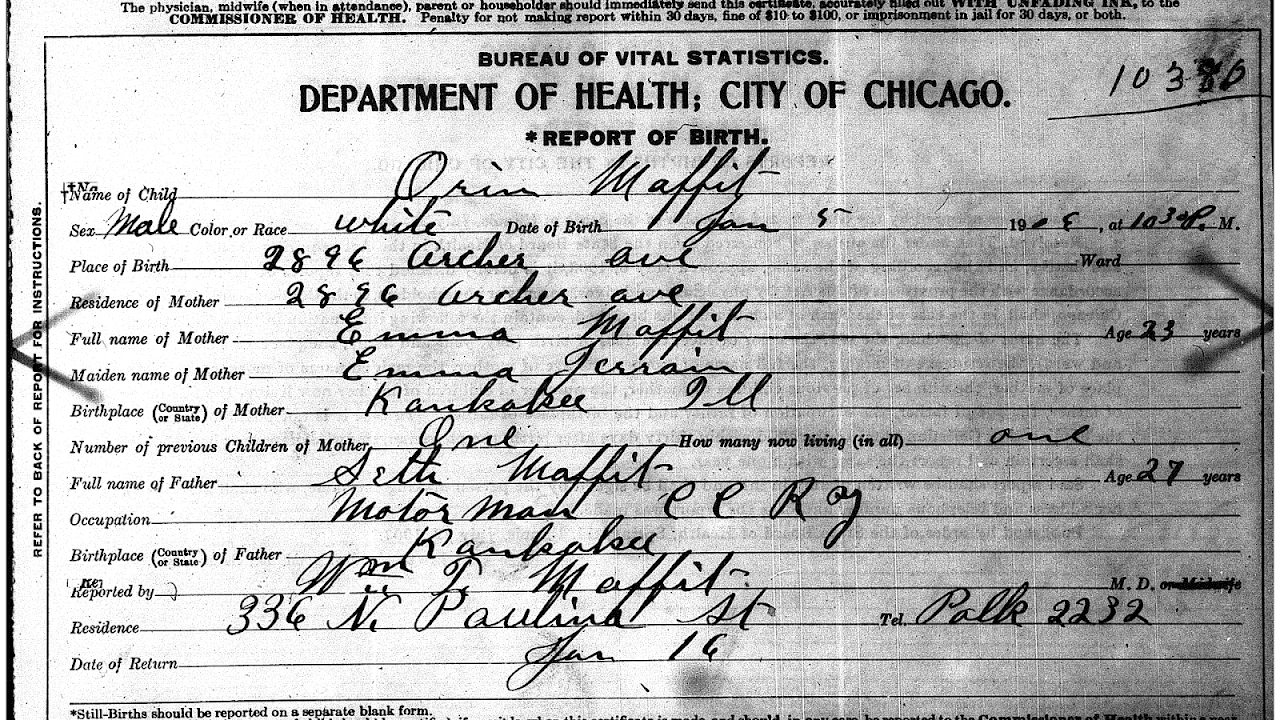 The physician, midwife (when in attendance), parent or householder should immediately send this certificate, accurately filled out WITH UNFADING INK, to the
COMMISSIONER OF HEALTH. Penalty for not making report within 30 days, fine of $10 to $100, or imprisonment in jail for 30 days, or both.
BUREAU OF VITAL STATISTICS.
DEPARTMENT OF HEALTH; CITY OF CHICAGO.
*REPORT OF BIRTH.
†Name of Child Orin Maffit
Sex Male Color or Race white Date of Birth Jan 5 1908, at 10 30 P. M.
Place of Birth 2896 Archer ave Ward
Residence of Mother 2896 Archer ave
Full name of Mother Emma Maffit Age 23 years
Maiden name of Mother Emma Terrain
Birthplace (Country or State) of Mother Kankakee Ill
Number of previous Children of Mother One How many now living (in all) one
Full name of Father Seth Maffit Age 27 years
Occupation Motorman C C Ry
Birthplace (Country or State) of Father Kankakee
Reported by Wm T. Maffit M. D. or Midwife
Residence 336 N. Paulina St Tel. Polk 2232
Date of Return Jan 16
*Still-Births should be reported on a separate blank form.
REFER TO BACK OF REPORT FOR INSTRUCTIONS.